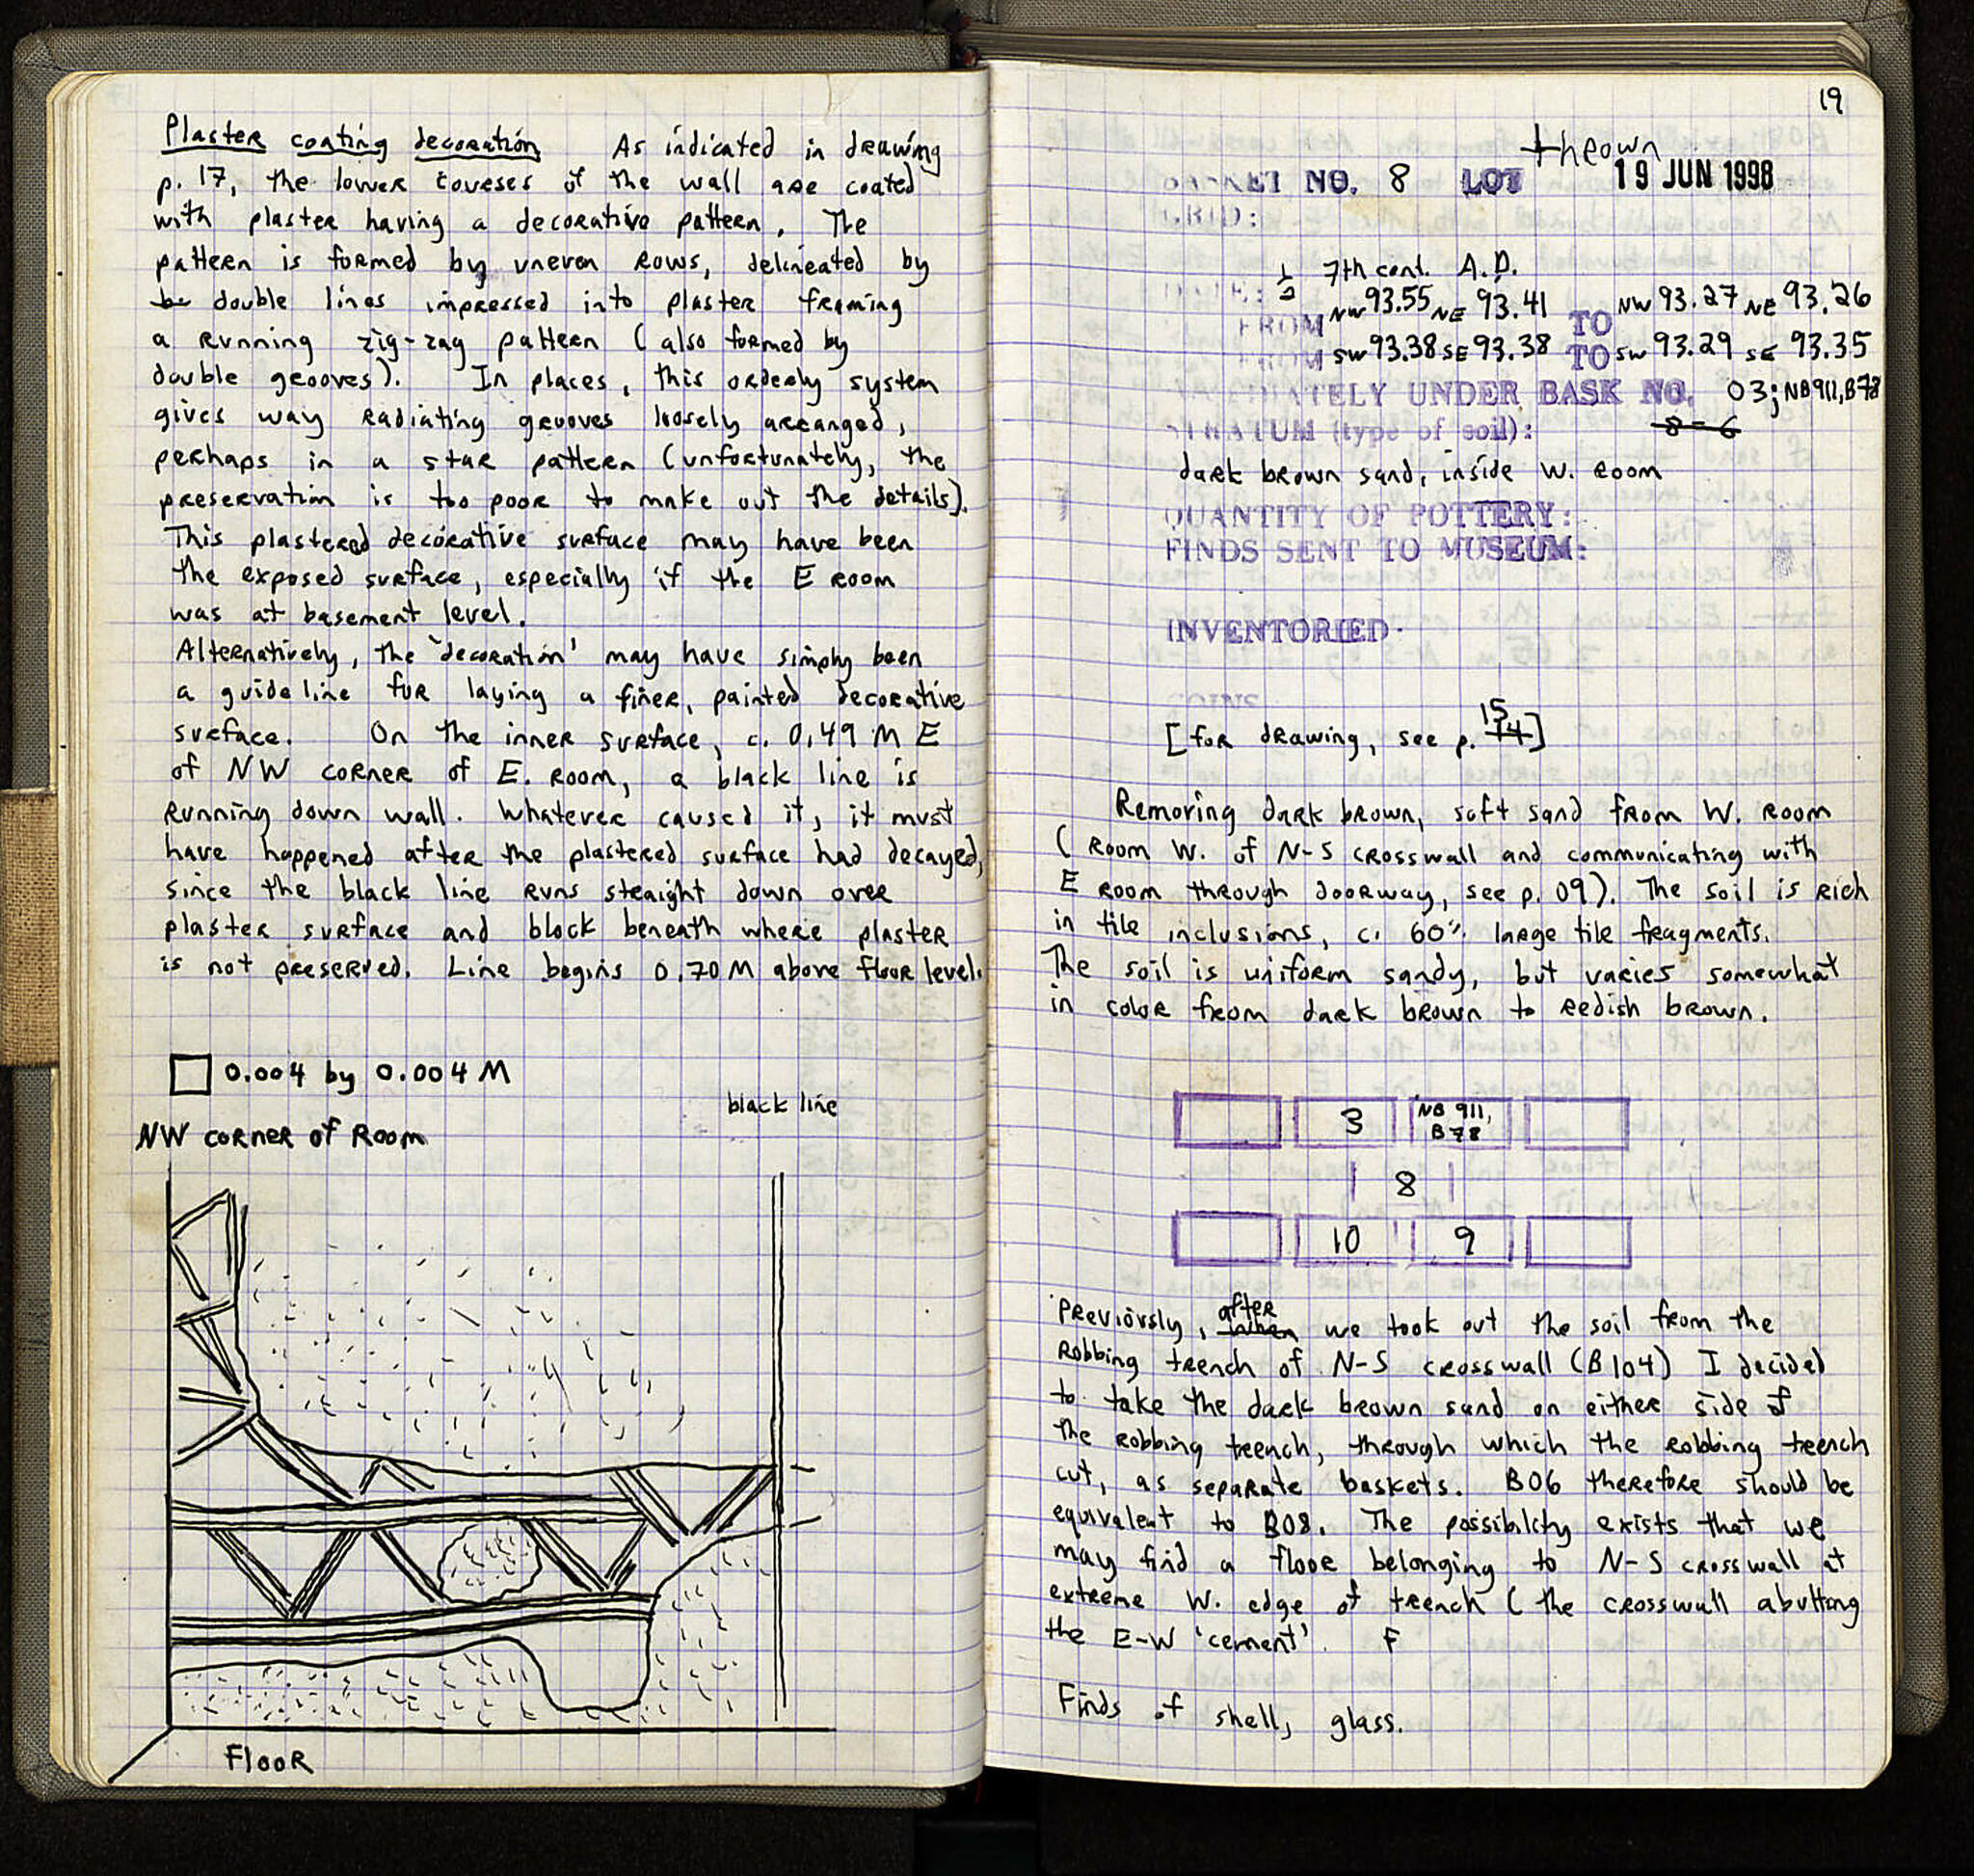 Plaster coating decoration As indicated in drawing
p. 17, the lower courses of the wall are coated
with plaster having a decorative pattern. The
pattern is formed by uneven rows, delineated by
be double lines impressed into plaster framing
a running zig-zag pattern (also formed by
double grooves). In places, this orderly system
gives way radiating grooves loosely arranged,
perhaps in a star pattern (unfortunately, the
preservation is too poor to make out the details).
This plastered decorative surface may have been
the exposed surface, especially if the E room
was at basement level.
Alternatively, the 'decoration' may have simply been
a guide line for laying a finer, painted decorative
surface. On the inner surface, c. 0.49 M E
of NW corner of E. Room, a black line is
running down wall. Whatever caused it, it must
have happened after the plastered surface had decayed,
since the black line runs straight down over
plaster surface and block beneath where plaster
is not preserved. Line begins 0.70 M above floor level.
0.004 by 0.004 M
black line
NW corner of Room
Floor
19
thrown
BASKET NO. 8 LOT 19 JUN 1998
GRID:
1/2 7th cent. A.D.
NW 93.55 NE 93.41 TO NW 93.27 NE 93.26
FROM SW 93.38 SE 93.38 TO SW 93.29 SE 93.35
IMMEDIATELY UNDER BASK NO. 03; NB 911, B78
8-6
STRATUM (type of soil):
dark brown sand, inside W. room
QUANTITY OF POTTERY:
FINDS SENT TO MUSEUM:
INVENTORIED
COINS
[for drawing, see p. 15 14]
Removing dark brown, soft sand from W. room
(Room W. of N-S crosswall and communicating with
E room through doorway, see p. 09). The soil is rich
in tile inclusions, c. 60% large tile fragments.
The soil is uniform sandy, but varies somewhat
in color from dark brown to redish brown.
3 NB 911, B78
8
10 9
Previously, after when we took out the soil from the
Robbing trench of N-S crosswall (B104) I decided
to take the dark brown sand on either side of
the robbing trench, through which the robbing trench
cut, as separate baskets. B06 therefore should be
equivalent to B08. The possibility exists that we
may find a floor belonging to N-S crosswall at
extreme W. edge of trench (the crosswall abutting
the E-W 'cement'. F
Finds of shell, glass.